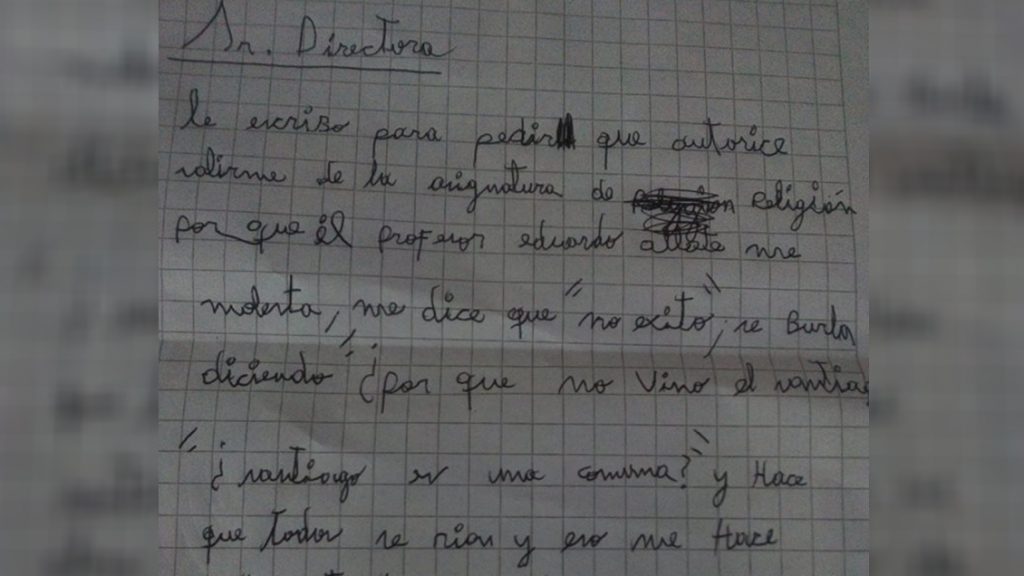 Sr. Directora
le escribo para pedir que autorice
salirme de la asignatura de religión
por que él profesor eduardo me
molesta, me dice que "no exito", se Burla
diciendo "¿por que no vino el santiago
"¿santiago es una comuna?" y Hace
que todos se rian y eso me Hace